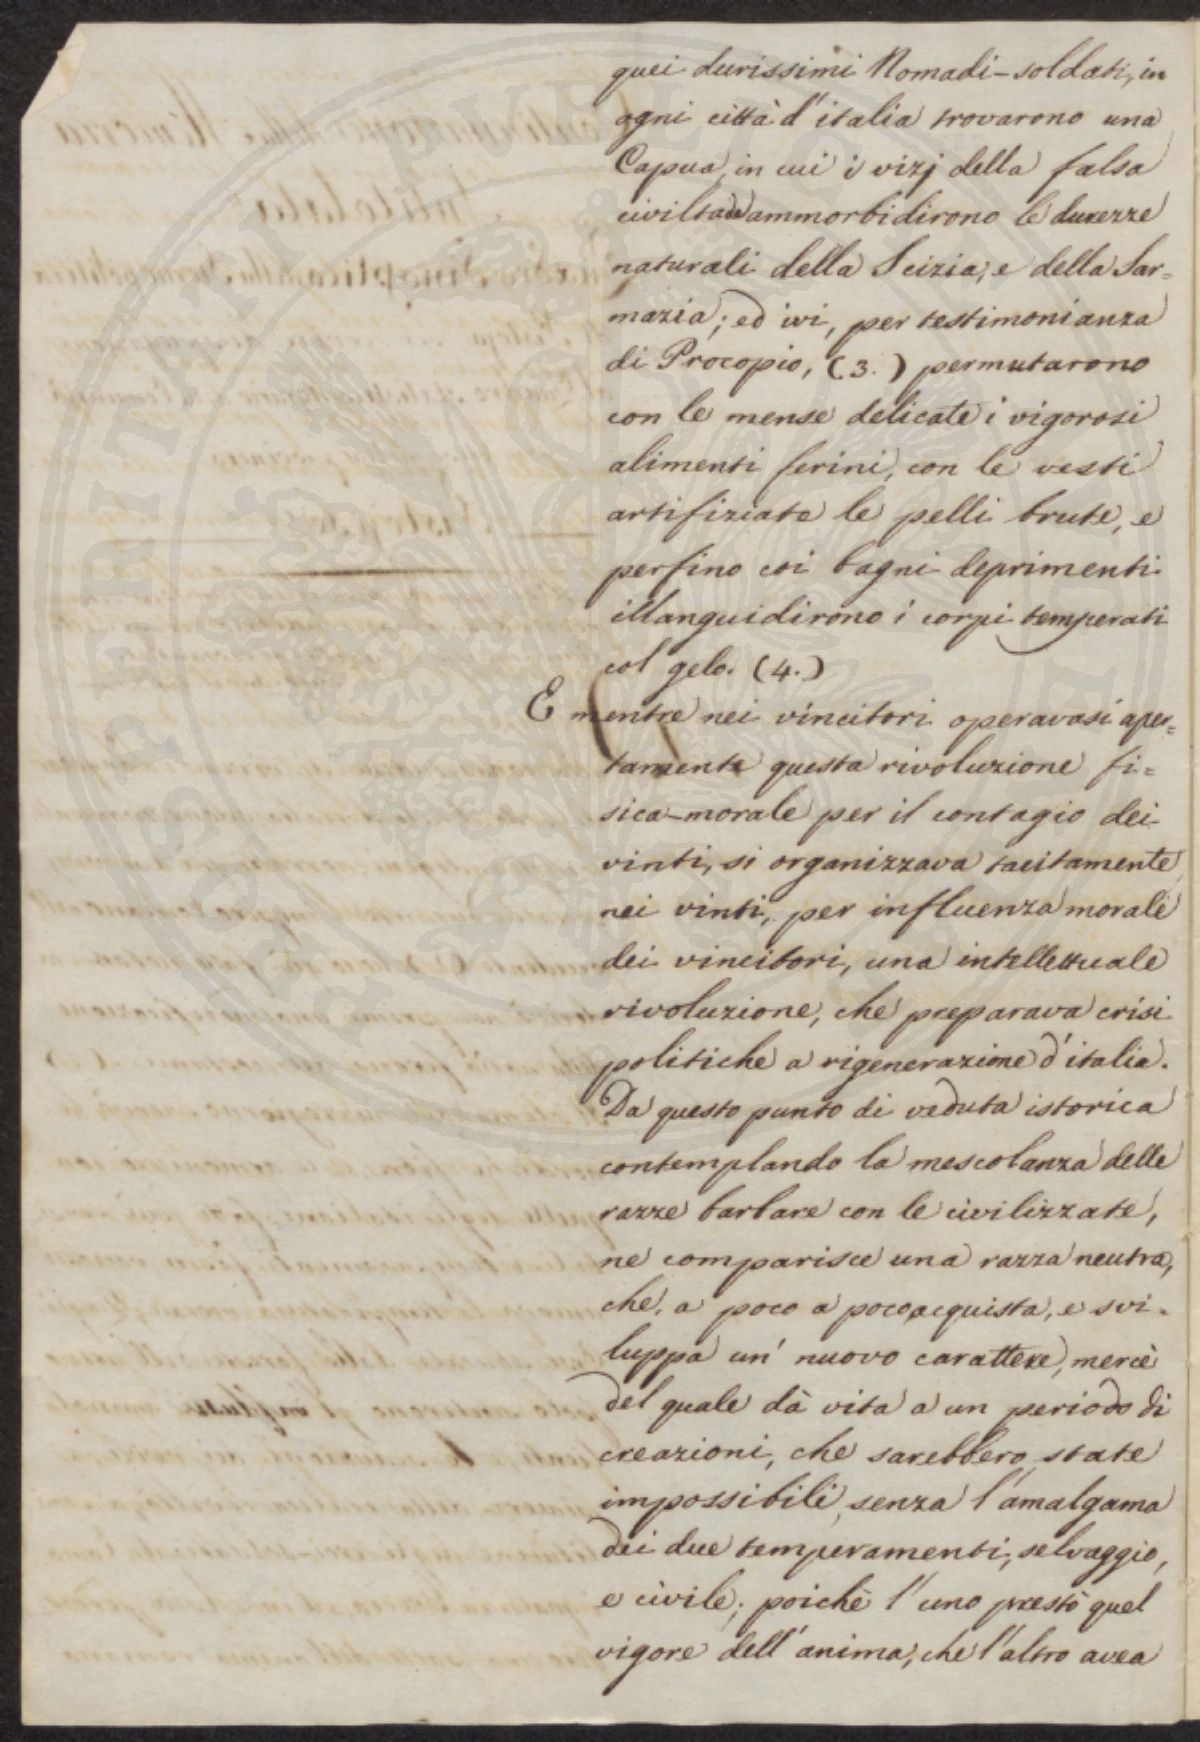 quei durissimi Nomadi-soldati, in
ogni città d'italia trovarono una
Capua, in cui i vizj della falsa
civiltade ammorbidirono le durezze
naturali della Scizia, e della Sar=
mazia; ed ivi, per testimonianza
di Procopio, (3.) permutarono
con le mense delicate i vigorosi
alimenti ferini, con le vesti
artifiziate le pelli brute, e
perfino coi bagni deprimenti
illanguidirono i corpi temperati
col gelo. (4.)
E mentre nei vincitori operavasi aper=
tamente questa rivoluzione fi=
sica-morale per il contagio dei
vinti, si organizzava tacitamente
nei vinti, per influenza morale
dei vincitori, una intellettuale
rivoluzione, che preparava crisi
politiche a rigenerazione d'italia.
Da questo punto di veduta istorica
contemplando la mescolanza delle
razze barbare con le civilizzate,
ne comparisce una razza neutra,
che, a poco a poco acquista, e svi=
luppa un' nuovo carattere, mercè
del quale dà vita a un periodo di
creazioni, che sarebbero state
impossibili, senza l'amalgama
dei due temperamenti, selvaggio,
e civile; poichè l'uno prestò quel
vigore dell'anima, che l'altro avea